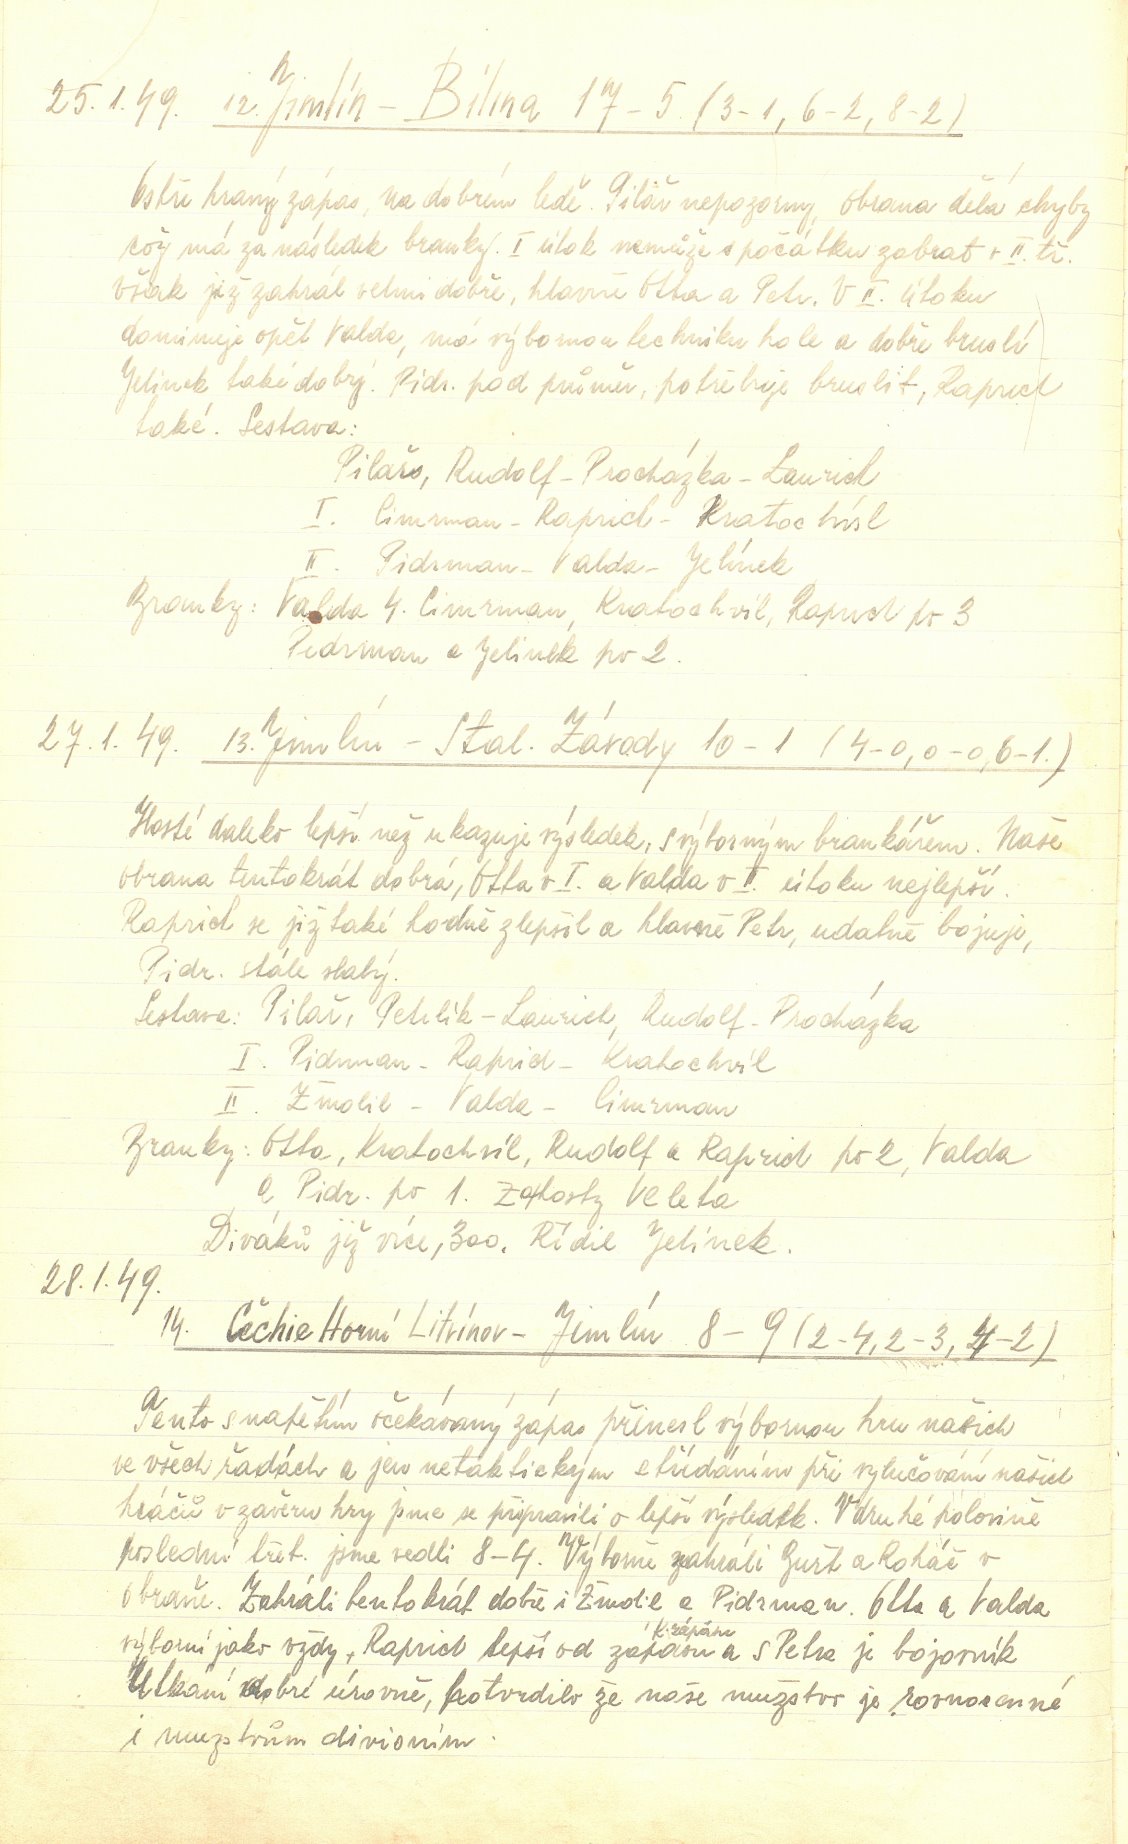 25.1.49. 12. Jimlín - Bílina 17 - 5 (3-1, 6-2, 8-2)
Ostře hraný zápas, na dobrém ledě. Pilař nepozorný, obrana dělá chyby
což má za následek branky. I útok nemůže s počátku zabrat v II. tř.
však již zahrál velmi dobře, hlavně Otta a Petr. V II. útoku
dominuje opět Valda, má výbornou techniku hole a dobře bruslí
Jelínek také dobrý. Pidr. pod průměr, potřebuje bruslit, Raprich
také. Sestava:
Pilař, Rudolf - Procházka - Laurich
I. Cimrman - Raprich - Kratochvíl
II. Pidrman - Valda - Jelínek
Branky: Valda 4. Cimrman, Kratochvíl, Raprich po 3
Pidrman a Jelinek po 2.
27.1.49. 13. Jimlín - Stal. Závody 10 - 1 (4-0, 0-0, 6-1.)
Hosté daleko lepší než ukazuje výsledek, s výborným brankářem. Naše
obrana tentokrát dobrá, Otta v I. a Valda v II. útoku nejlepší.
Raprich se již také hodně zlepšil a hlavně Petr, udatně bojuje,
Pidr. stále slabý.
Sestava: Pilař, Petrlík - Laurich, Rudolf - Procházka
I. Pidrman - Raprich - Kratochvíl
II. Žmolil - Valda - Cimrman
Branky: Otta, Kratochvíl, Rudolf a Raprich po 2, Valda
a Pidr. po 1. Za hosty Veleta
Diváků již více, 300. Řídil Jelínek.
28.1.49.
14. Čechie Horní Litvínov - Jimlín 8 - 9 (2-4, 2-3, 4-2)
Tento s napětím očekávaný zápas přinesl výbornou hru našich
ve všech řadách a jen netaktickým střídáním při vylučování našich
hráčů v závěru hry jsme se připravili o lepší výsledek. V druhé polovině
poslední třet. jsme vedli 8-4. Výborně zahráli Gušt a Roháč v
obraně. Zahráli tentokrát dobře i Žmolil a Pidrman. Otta a Valda
výborní jako vždy, Raprich lepší od zápasu
k zápasu
a s Petra je bojovník
Utkání dobré úrovně, potvrdilo že naše mužstvo je rovnocenné
i mužstvům divisním.